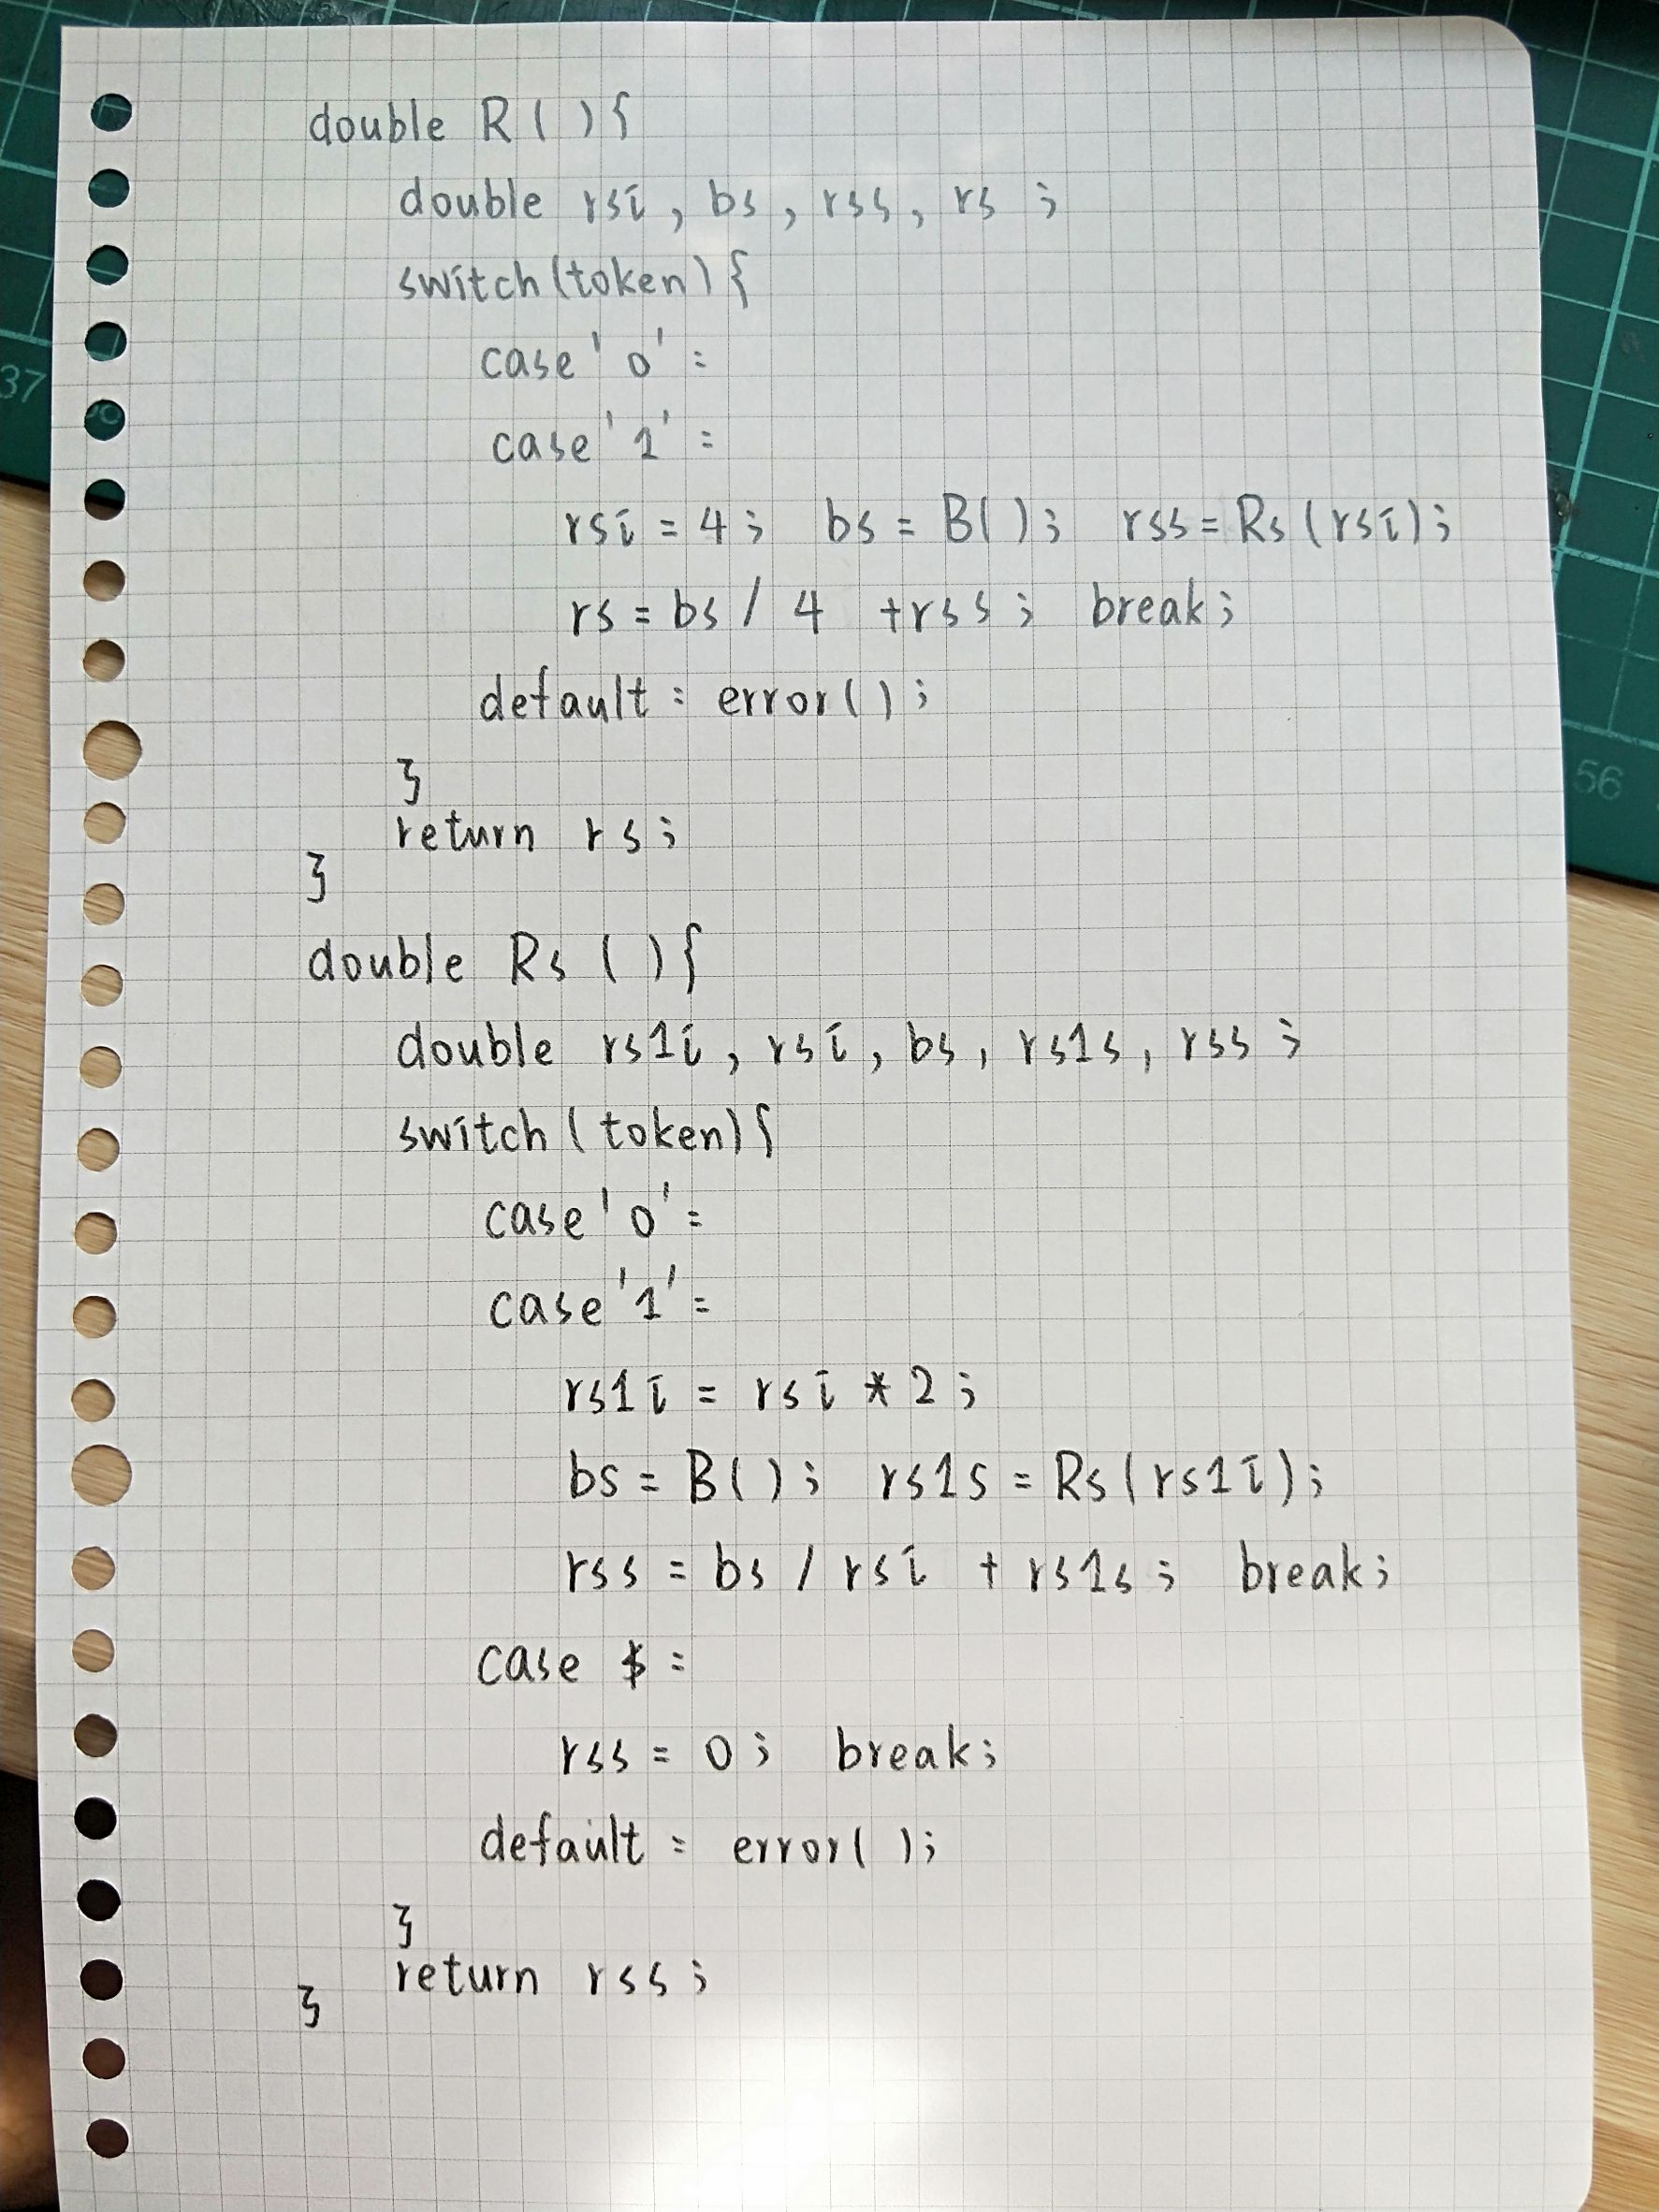 double R ( ) {
double rsi , bs , rss , rs ;
switch (token) {
case '0' :
case '1' :
rsi = 4 ; bs = B( ) ; rss = Rs (rsi) ;
rs = bs / 4 + rss ; break ;
default : error( ) ;
}
return rs ;
}
double Rs ( ) {
double rs1i , rsi , bs , rs1s , rss ;
switch ( token) {
case '0' :
case '1' :
rs1i = rsi * 2 ;
bs = B( ) ; rs1s = Rs (rs1i) ;
rss = bs / rsi + rs1s ; break ;
case $ :
rss = 0 ; break ;
default : error( ) ;
}
return rss ;
}
37
29
56